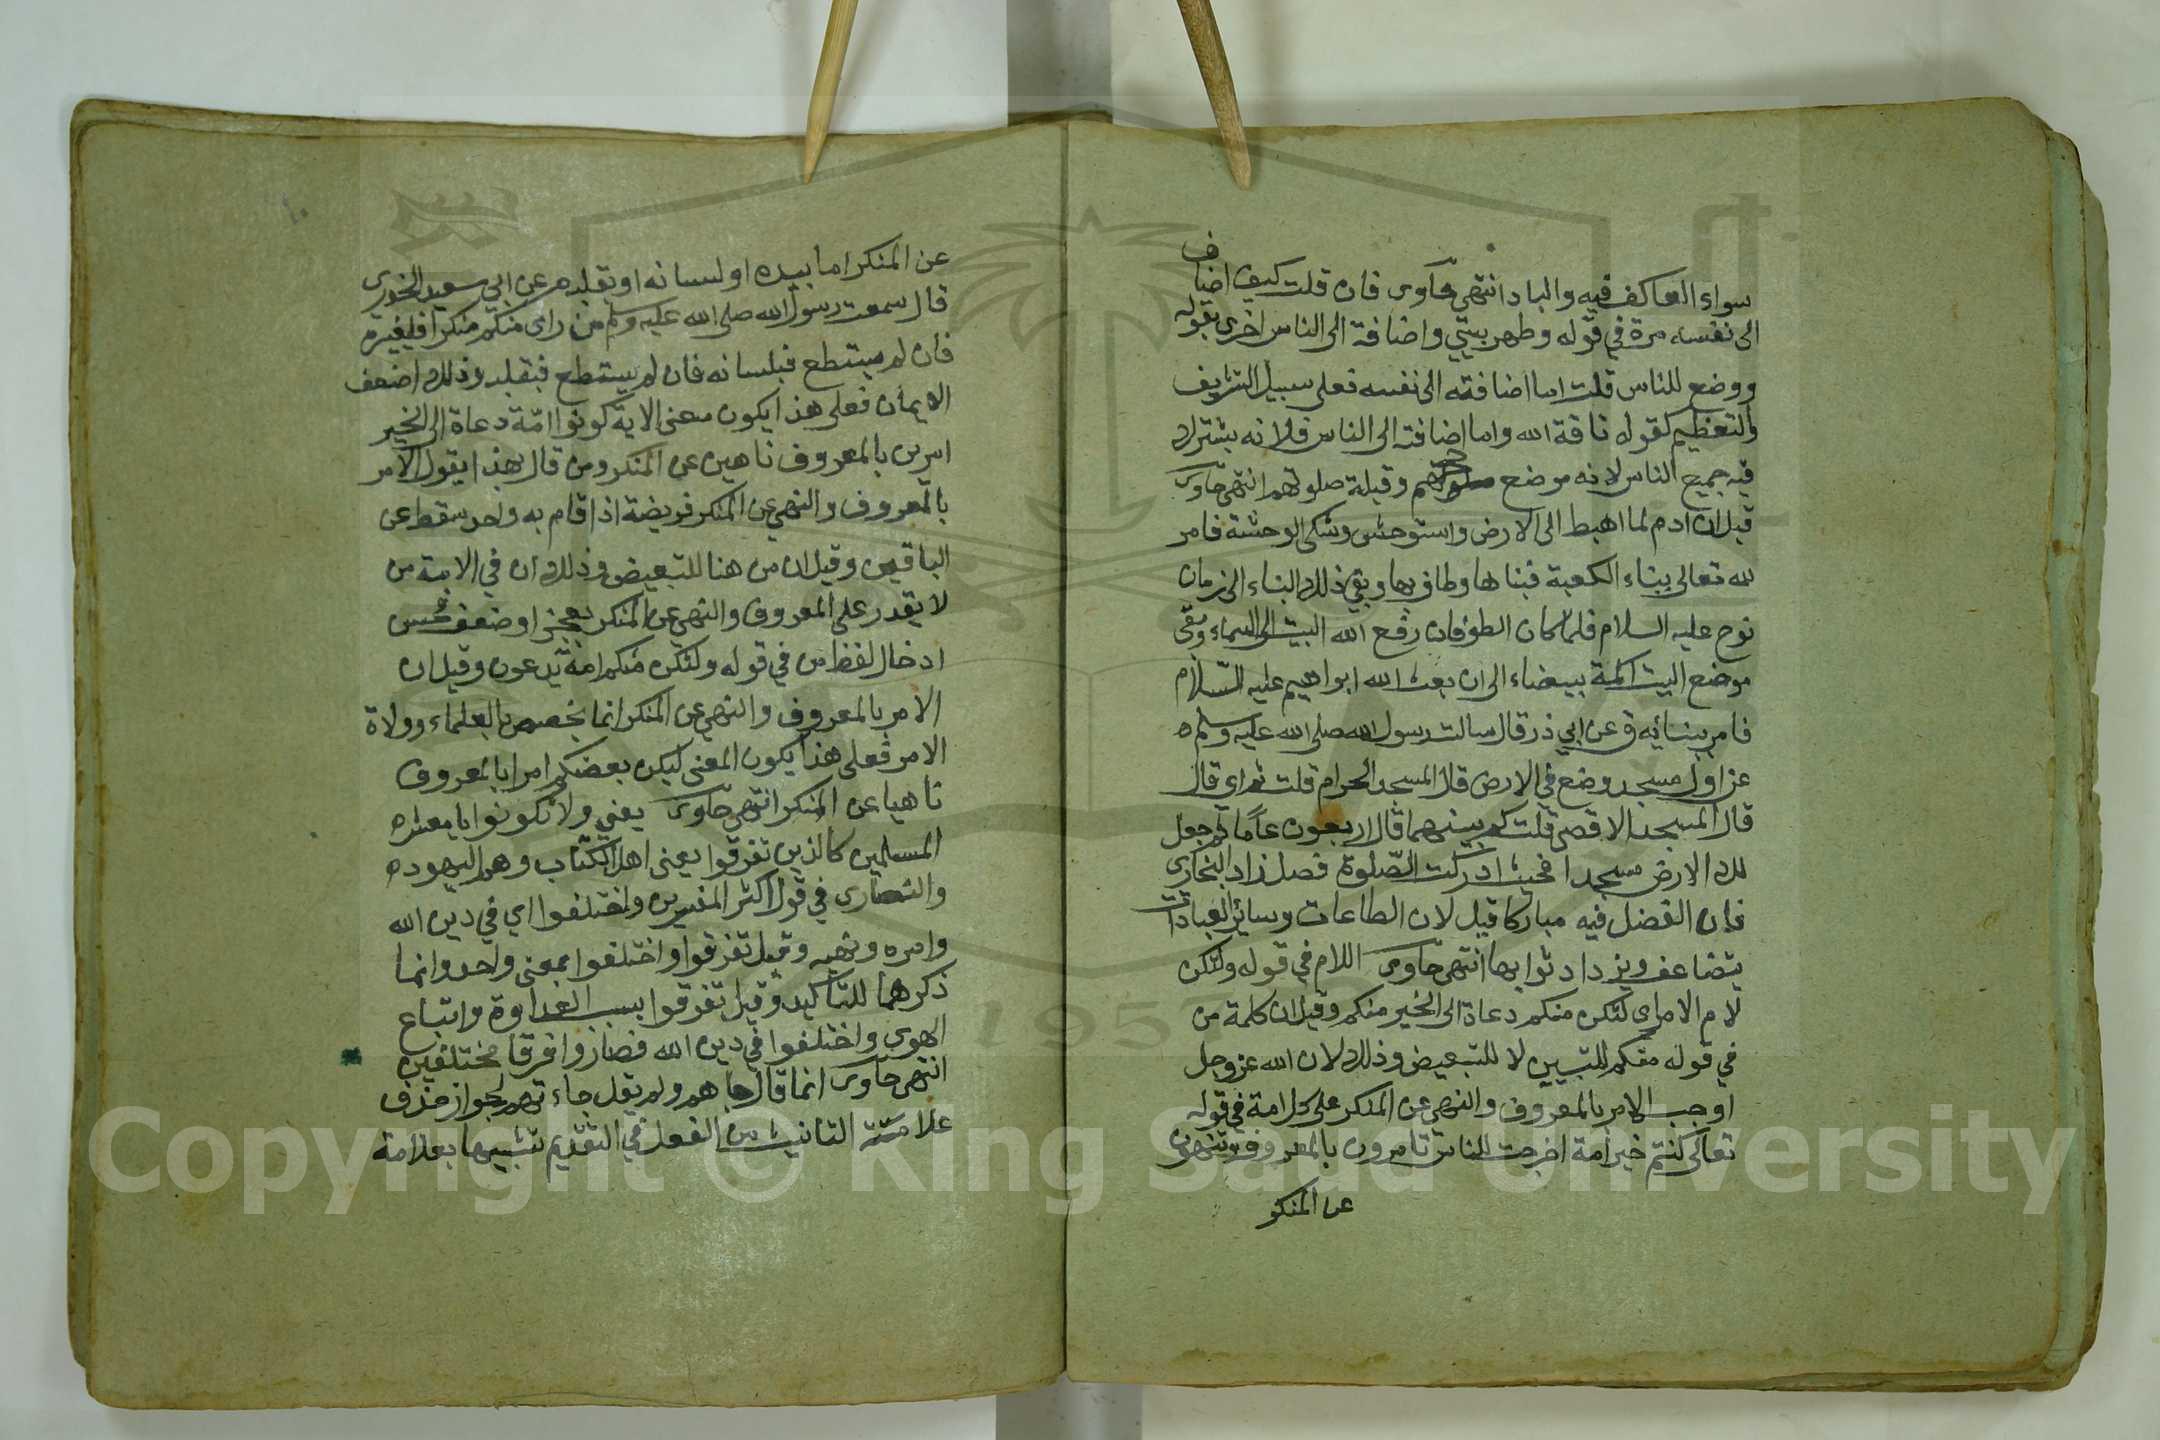 سواء العاكف فيه والباد انتهى حاوى فان قلت كيف اضاف
الى نفسه مرة في قوله وطهر بيتي واضافة الى الناس اخرى بقوله
ووضع للناس قلت اما اضافته الى نفسه فعلى سبيل التشريف
والتعظيم كقوله ناقة الله واما اضافته الى الناس فلانه يشترك
فيه جميع الناس لانه موضع حجهم وقبلة صلوتهم انتهى حاوى
قيل ان ادم لما اهبط الى الارض واستوحش وشكى الوحشة فامر
لله تعالى ببناء الكعبة فبناها وطاف بها وبقى ذلك البناء الى زمان
نوح عليه السلام فلما كان الطوفان رفع الله البيت الى السماء وبقى
موضع البيت اكمة بيضاء الى ان بعث الله ابراهيم عليه السلام
فامر ببنائه ق عن ابي ذر قال سالت رسول الله صلى الله عليه وسلم ه
عن اول مسجد وضع في الارض قال المسجد الحرام قلت ثم اي قال
قال المسجد الاقصى قلت كم بينهما قال اربعون عاما ثم جعل
لك الارض مسجدا فحيث ادركت الصلوة فصل زاد البخارى
فان الفضل فيه مباركا قيل لان الطاعات وسائر العبادات
يتضاعف ويزداد ثوابها انتهى حاوى اللام في قوله ولتكن
لام الامر اى لتكن منكم دعاة الى الخير منكم وقيل ان كلمة من
في قوله منكم للتبيين لا للتبعيض وذلك لان الله عز وجل
اوجب الامر بالمعروف والنهي عن المنكر على كل امة في قوله
تعالى كنتم خير امة اخرجت للناس تامرون بالمعروف وتنهون
عن المنكر
عن المنكر اما بيده او لسانه او بقلبه م عن ابي سعيد الخدرى
قال سمعت رسول الله صلى الله عليه وسلم من راى منكم منكرا فليغيره
فان لم يستطع فبلسانه فان لم يستطع فبقلبه وذلك اضعف
الايمان فعلى هذا يكون معنى الاية كونوا امة دعاة الى الخير
امرين بالمعروف ناهين عن المنكر ومن قال بهذا يقول الامر
بالمعروف والنهي عن المنكر فريضة اذا قام به واحد سقط عن
الباقين وقيل ان من هنا للتبعيض وذلك ان في الامة من
لا يقدر على المعروف والنهي عن المنكر بعجز او ضعف فحسن
ادخال لفظ من في قوله ولتكن منكم امة يدعون وقيل ان
الامر بالمعروف والنهي عن المنكر انما يختص بالعلماء وولاة
الامر فعلى هذا يكون المعنى ليكن بعضكم امرا بالمعروف
ناهيا عن المنكر انتهى حاوى يعني ولا تكونوا يا معشر ه
المسلمين كالذين تفرقوا يعنى اهل الكتاب وهم اليهود ه
والنصارى في قول اكثر المفسرين واختلفوا اي في دين الله
وامره ونهيه وقيل تفرقوا واختلفوا بمعنى واحد وانما
ذكرهما للتاكيد وقيل تفرقوا بسبب العداوة واتباع
الهوى واختلفوا في دين الله فصاروا فرقا مختلفين
انتهى حاوى انما قال جاهم ولم يقل جاءتهم لجواز حذف
علامة التانيث من الفعل في التقديم تشبيها بعلامة
١٠
Copyright © King Saud University
195